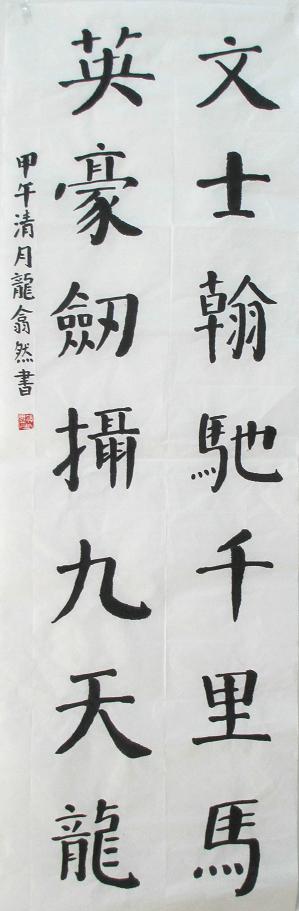 文士翰馳千里馬
英豪劒攝九天龍
甲午清月龍翕然書